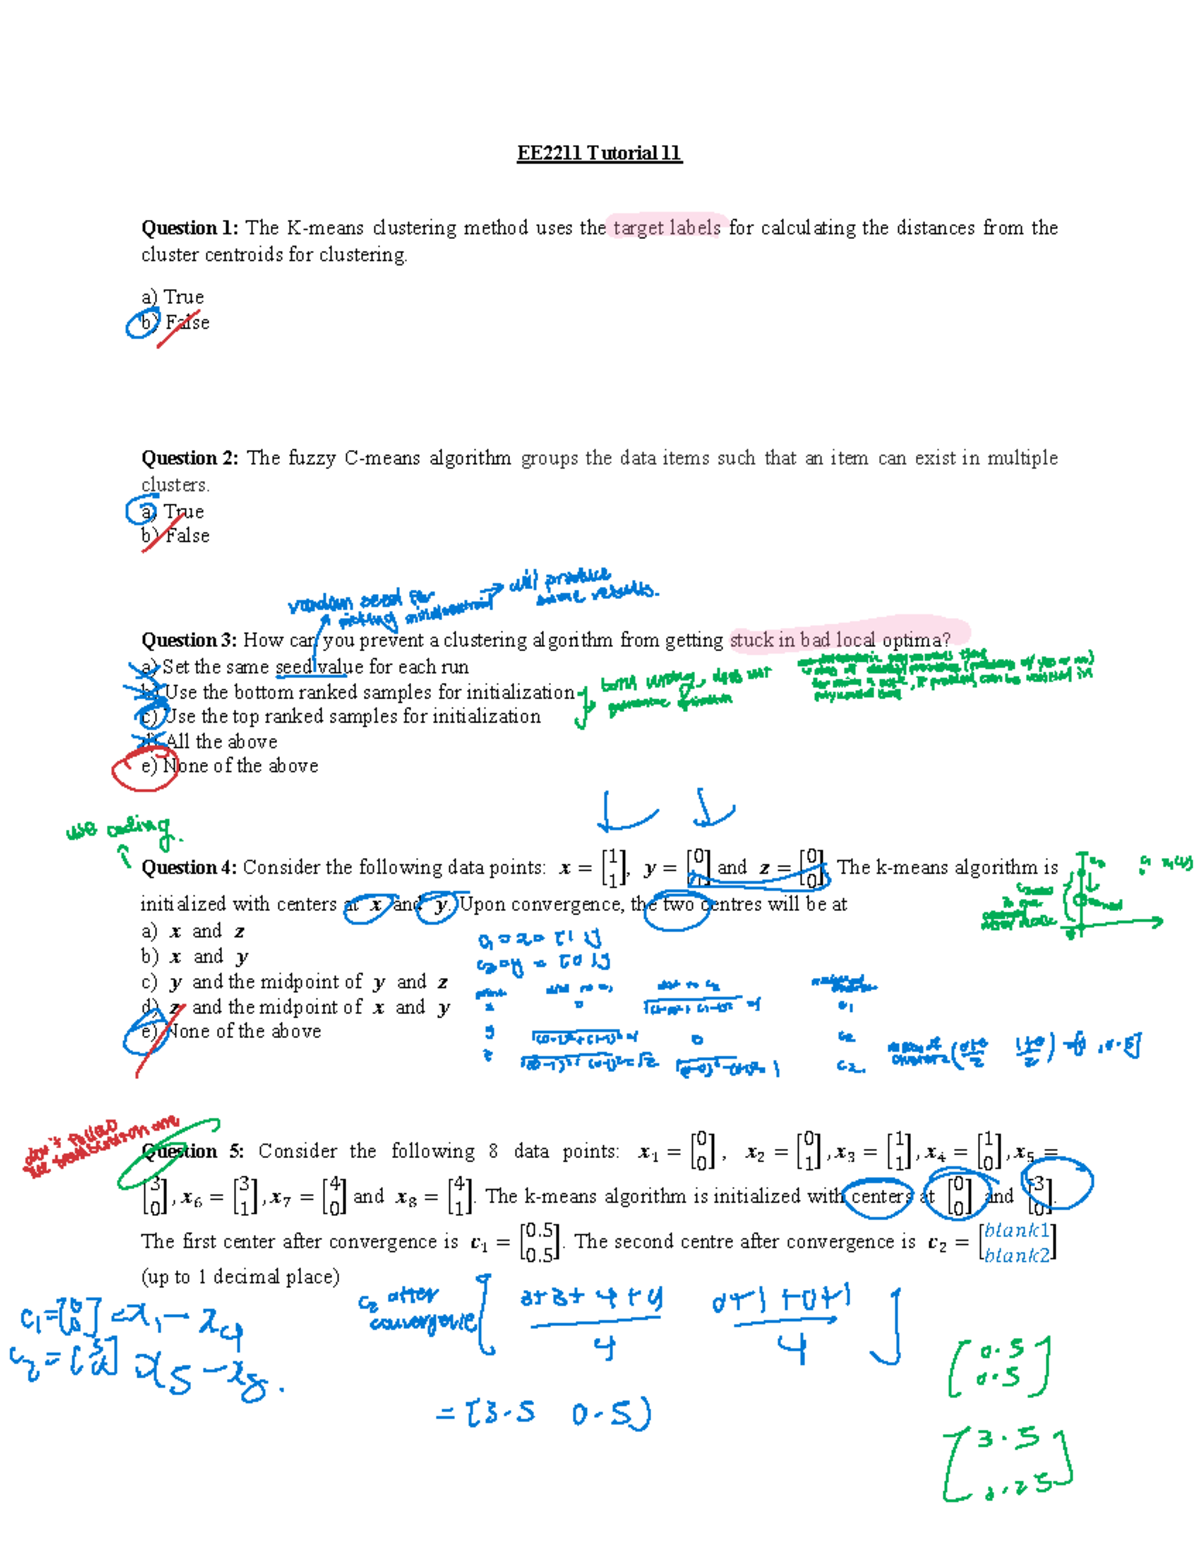 EE2211 Tutorial 11
Question 1: The K-means clustering method uses the target labels for calculating the distances from the
cluster centroids for clustering.
a) True
b) False
Question 2: The fuzzy C-means algorithm groups the data items such that an item can exist in multiple
clusters.
a) True
b) False
random seed for → will produce
picking initial centroid same results.
Question 3: How can you prevent a clustering algorithm from getting stuck in bad local optima?
a) Set the same seed value for each run
b) Use the bottom ranked samples for initialization
both wrong, does not
guarantee
c) Use the top ranked samples for initialization
d) All the above
e) None of the above
use coding.
Question 4: Consider the following data points: x = [1 1], y = [0 1] and z = [0 0]. The k-means algorithm is
initialized with centers at x and y. Upon convergence, the two centres will be at
a) x and z
b) x and y
c) y and the midpoint of y and z
d) z and the midpoint of x and y
e) None of the above
c2 = y = [0 1]
point dist to c1 dist to c2
0
c1
y 0 c2
z c2.
mean of
cluster 2 (0+0/2 1+0/2) = [0, 0.5]
don't follow
Question 5: Consider the following 8 data points: x1 = [0 0], x2 = [0 1], x3 = [1 1], x4 = [1 0], x5 =
[3 0], x6 = [3 1], x7 = [4 0] and x8 = [4 1]. The k-means algorithm is initialized with centers at [0 0] and [3 0].
The first center after convergence is c1 = [0.5 0.5]. The second centre after convergence is c2 = [blank1 blank2]
(up to 1 decimal place)
c1 = [0 0] = x1 - x4
c2 = [3 0] x5 - x8.
c2 after
convergence [3+3+4+4/4 0+1+0+1/4]
= [3.5 0.5]
[0.5
0.5]
[3.5
0.25]